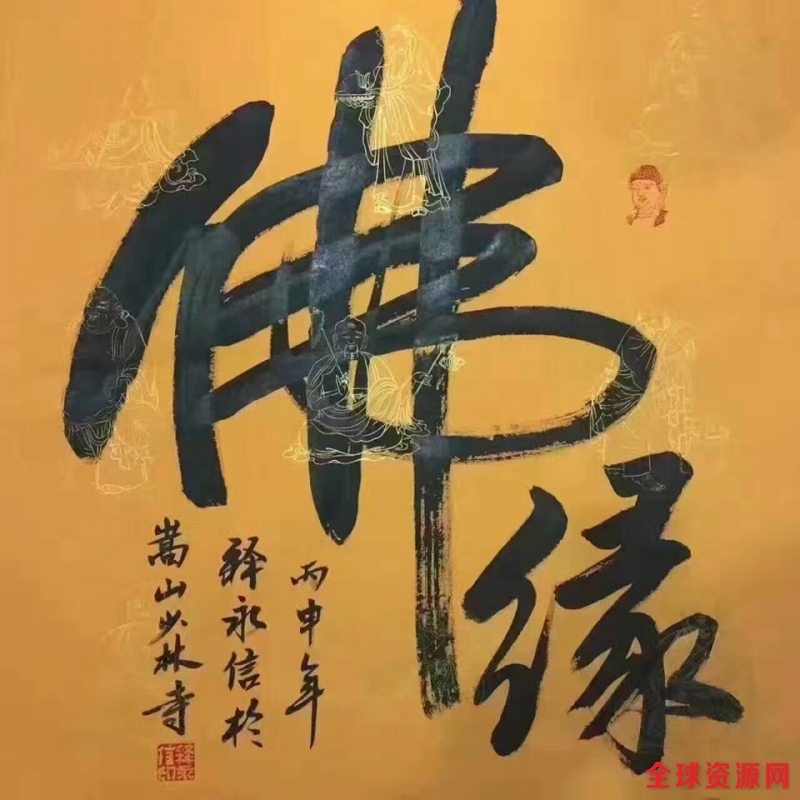 佛
缘
丙申年
释永信於
嵩山少林寺
全球资源网